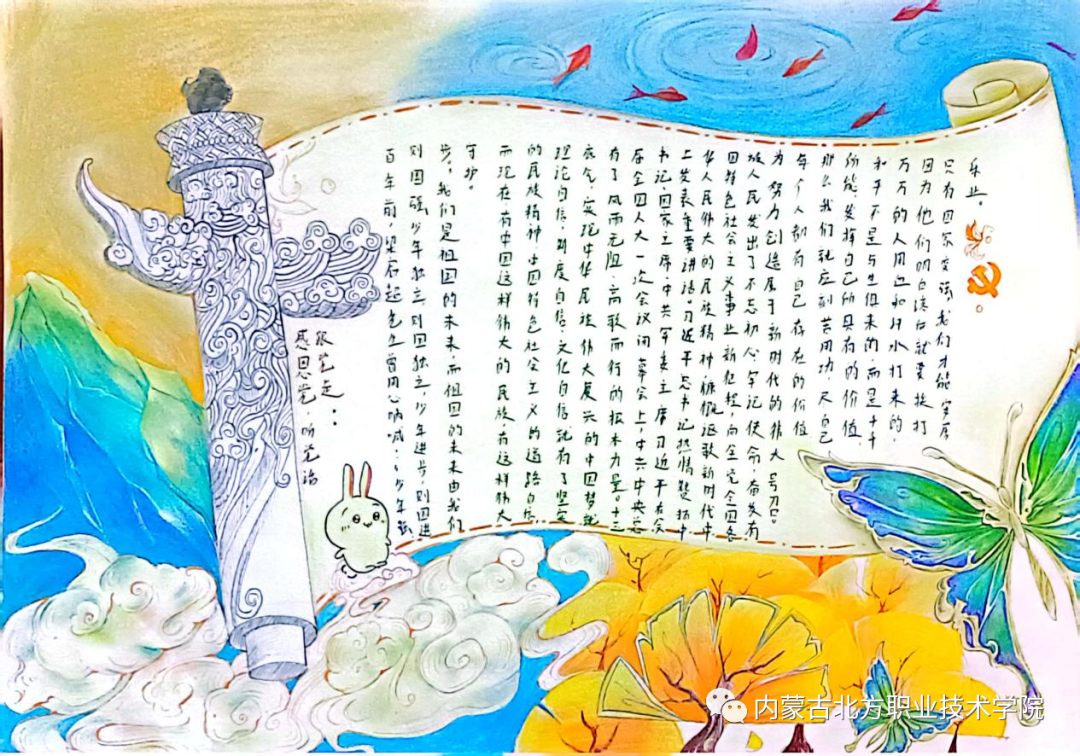 感恩党,听党话
跟党走。
百年前,梁启超先生曾用心呐喊:“少年强
则国强,少年独立,则国独立,少年进步,则国进
步。”我们是祖国的未来,而祖国的未来由我们
守护。
而现在,有中国这样伟大的民族,有这样伟大
的民族精神,中国特色社会主义的道路自信,
理论自信,制度自信,文化自信,就有了坚实
底气,实现中华民族伟大复兴的中国梦就
有了风雨无阻,高歌而行的根本力量。十三
届全国人大一次会议闭幕会上,中共中央总
书记、国家主席、中央军委主席习近平在会
上发表重要讲话。习近平总书记热情赞扬中
华人民伟大的民族精神,慷慨讴歌新时代中
国特色社会主义事业新征程,向全党全国各
族人民发出了不忘初心,牢记使命,奋发有
为,努力创造属于新时代的伟大号召。
每个人都有自己存在的价值
那么我们就应刻苦用功,尽自己
所能,发挥自己所具有的价值,
和平不是与生俱来的,而是千千
万万的人用血和汗水打来的,
因为他们明白落后就要挨打
只有国家变强,我们才能安居
乐业。
内蒙古北方职业技术学院